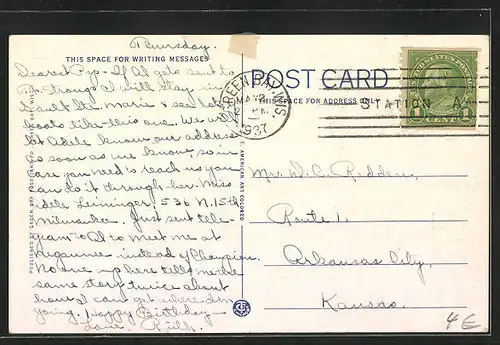 Thursday.
THIS SPACE FOR WRITING MESSAGES
Dearest Pop - If Al gets sent to
I will stay in
Sault Ste. Marie & see lake
boats like this one. We will
let Adele know our address
as soon as we know, so in
case you need to reach us you
can do it through her. Miss
Adele Leininger, 536 N. 15th
Milwaukee. Just sent tele-
gram to Al to meet me at
Negaunee instead of Champion.
No one up here tells me the
same story twice about
how I can get where I'm
going. Happy Birthday -
Love Ruth.
POST CARD
THIS SPACE FOR ADDRESS ONLY
GREEN BAY, WIS.
PM
1937
STATION A
UNITED STATES POSTAGE
1 CENT 1
Mr. D. C. Redden,
Route 1,
Arkansas City,
Kansas.
C. T. AMERICAN ART COLORED
4 €